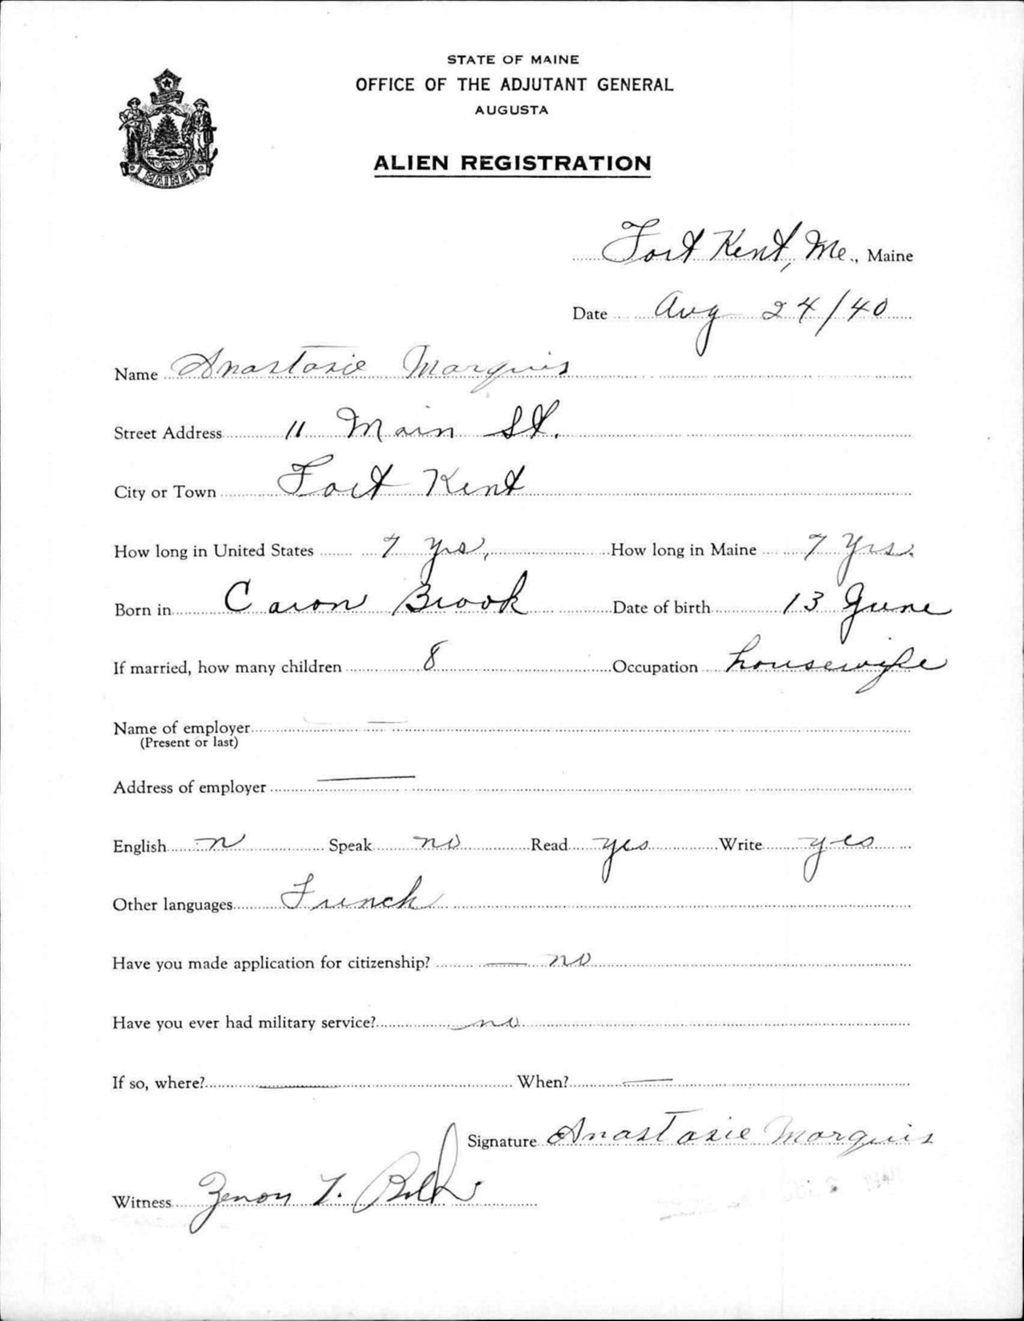 STATE OF MAINE
OFFICE OF THE ADJUTANT GENERAL
AUGUSTA
MAINE
ALIEN REGISTRATION
Fort Kent, Me., Maine
Date Aug 24/40
Name Anastasie Marquis
Street Address 11 Main St.
City or Town Fort Kent
How long in United States 7 yrs, How long in Maine 7 yrs.
Born in Caron Brook Date of birth 13 June
If married, how many children 8 Occupation housewife
Name of employer
(Present or last)
Address of employer
English n Speak no Read yes Write yes
Other languages French
Have you made application for citizenship? no
Have you ever had military service? no
If so, where? When?
Signature Anastasie Marquis
Witness Zenon